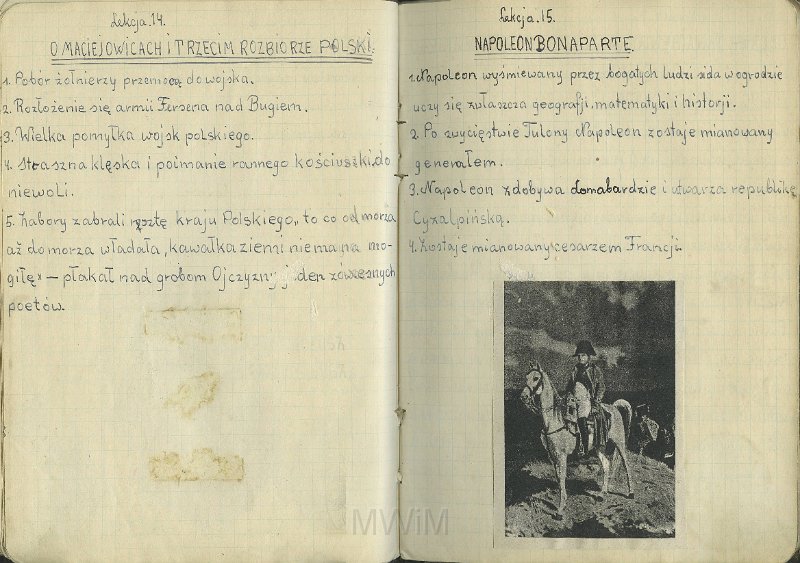 Lekcja.14.
O MACIEJOWICACH I TRZECIM ROZBIORZE POLSKI.
1. Pobór żołnierzy przemocą do wojska.
2. Rozłożenie się armii Fersena nad Bugiem.
3. Wielka pomyłka wojsk polskiego.
4. Straszna klęska i poimanie rannego kościuszki do
niewoli.
5. Zabory zabrali resztę kraju Polskiego, „to co od morza
aż do morza władała, kawałka ziemi niema na mo-
giłę" — płakał nad grobom Ojczyzny jeden
poetów.
Lekcja.15.
NAPOLEON BONAPARTE.
1. Napoleon wyśmiewany przez bogatych ludzi w ogrodzie
uczy się zwłaszcza geografji, matematyki i historji.
2. Po zwycięstwie Tulony Napoleon zostaje mianowany
generałem.
3. Napoleon zdobywa domabardzie i utwarza republikę
Cyzalpińską.
4. Zostaje mianowany cesarzem Francji.
MWiM